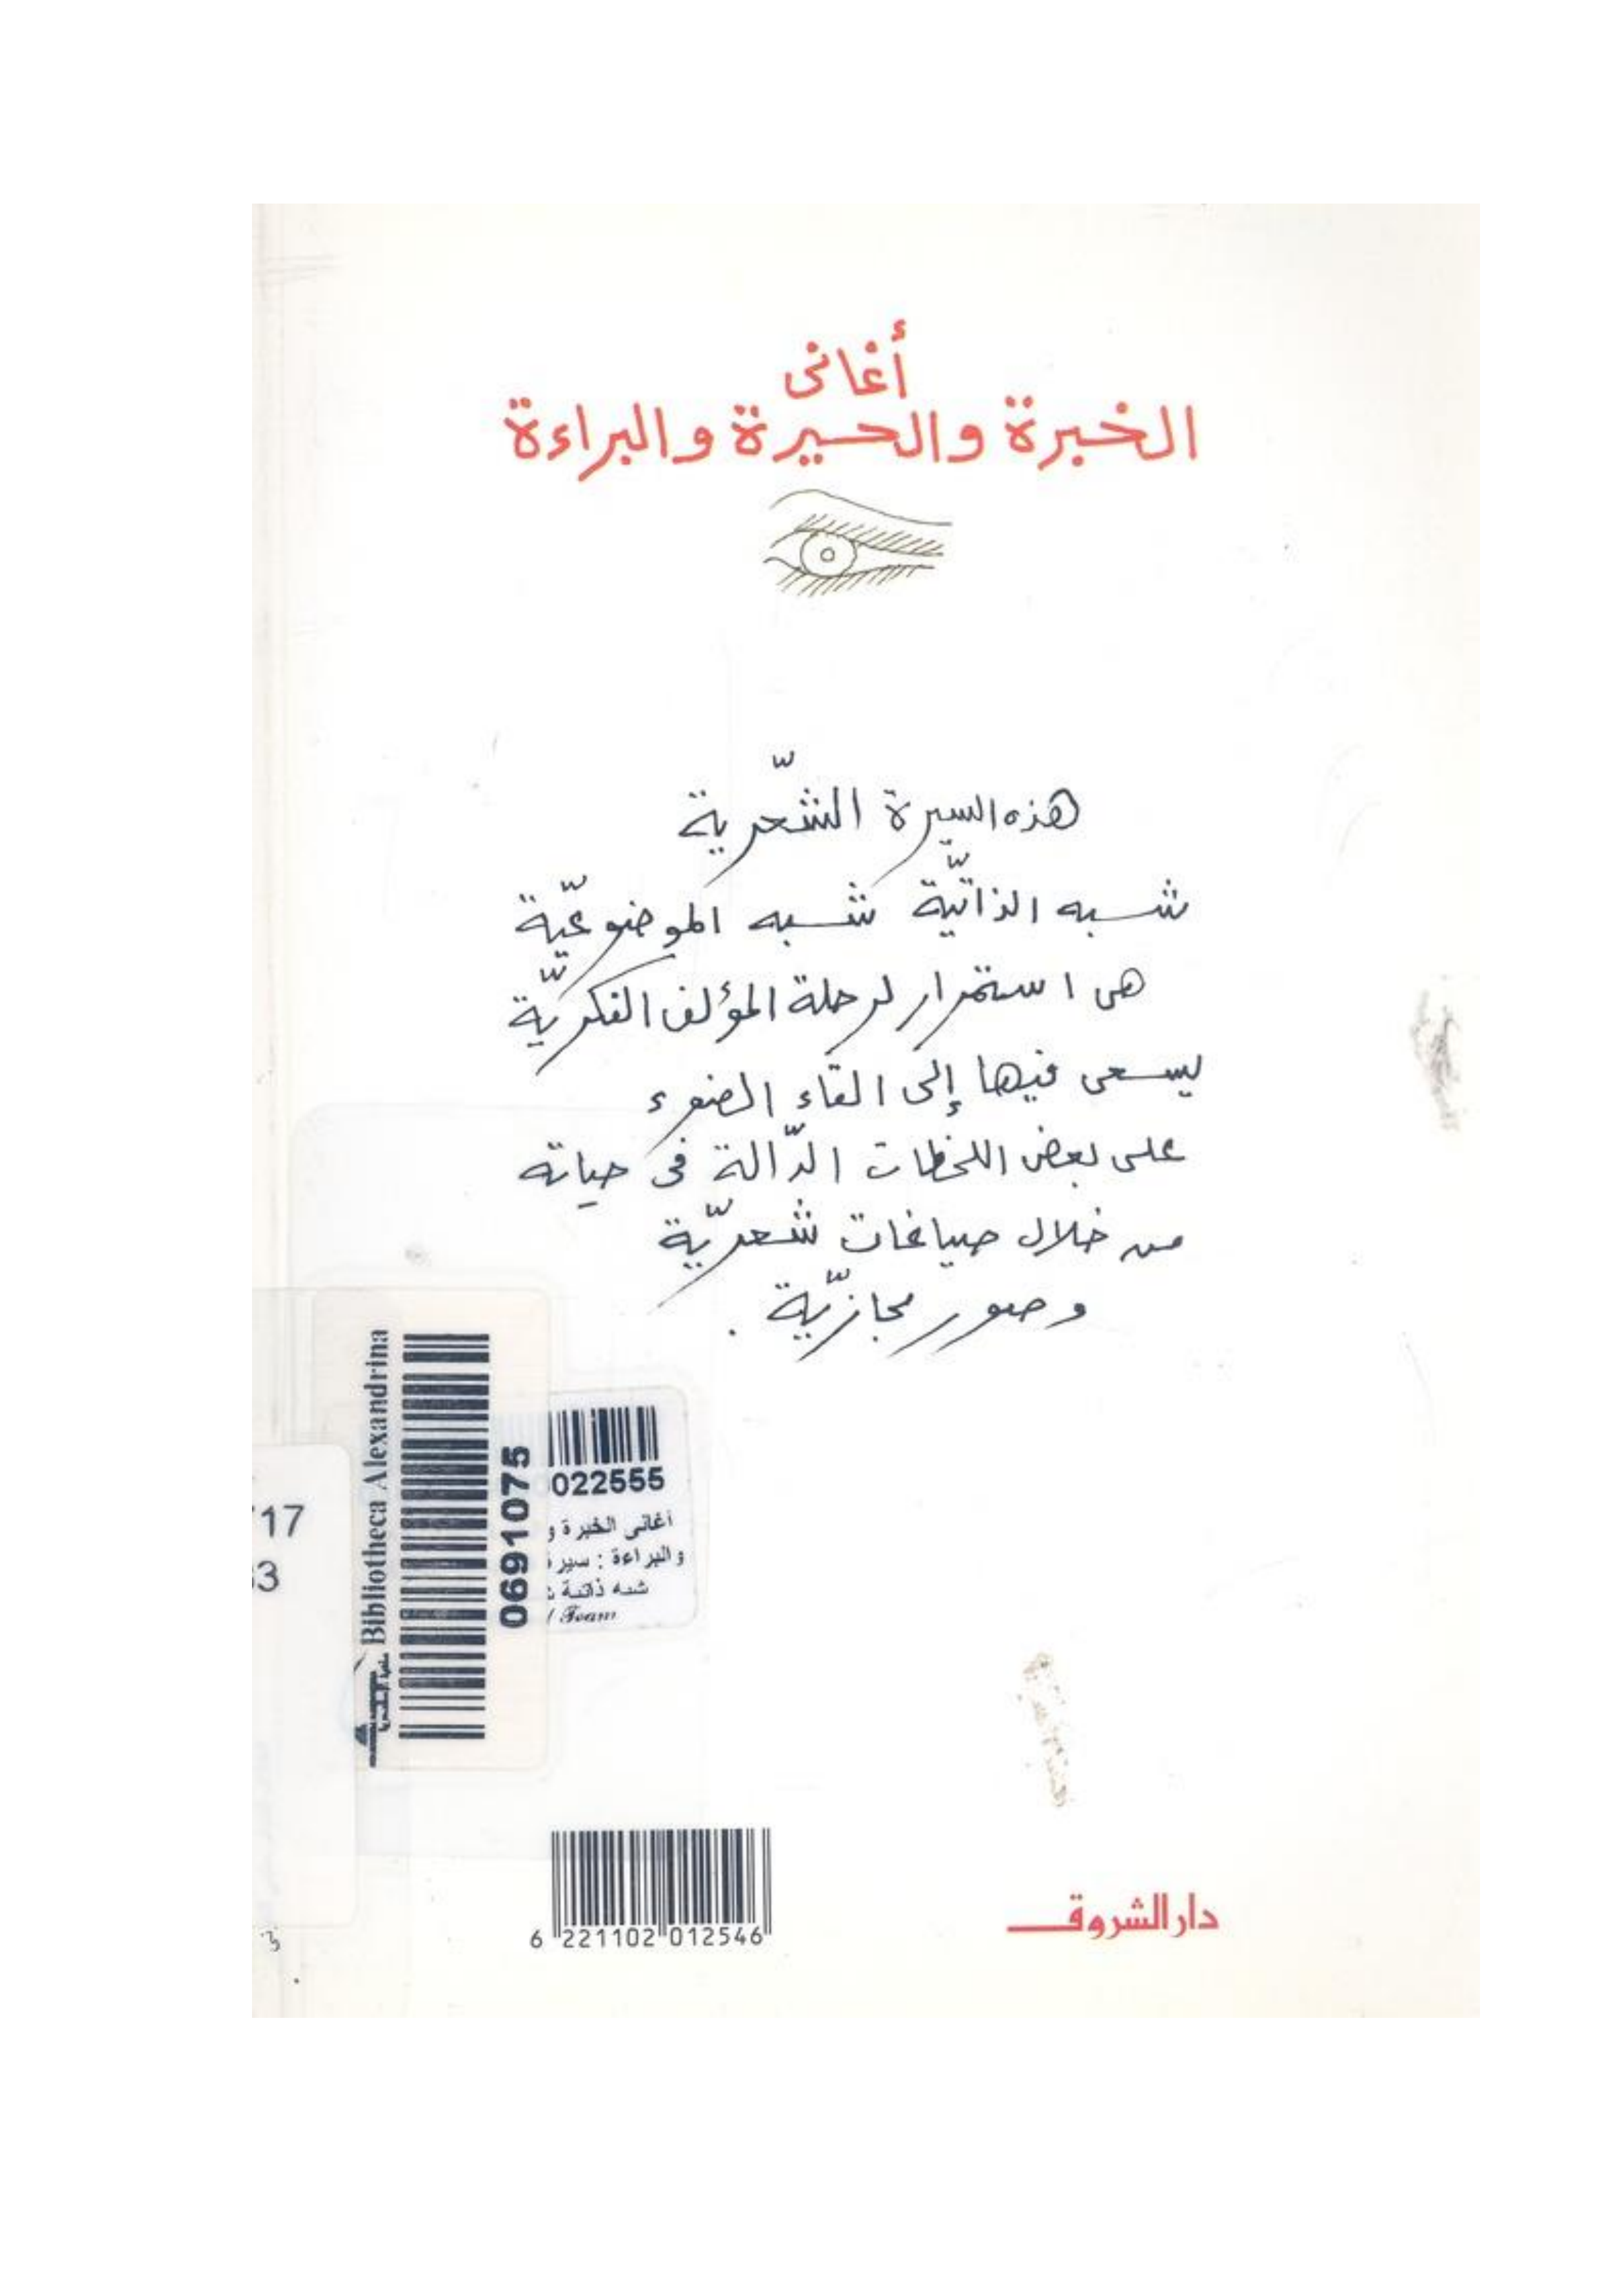 أغانى
الخبرة والحيرة والبراءة
هذه السيرة الشّعرية
شبه الذاتيّة شبه الموضوعيّة
هى استمرار لرحلة المؤلف الفكريّة
يسعى فيها إلى القاء الضوء
على بعض اللحظات الدّالة فى حياته
من خلال صياغات شعريّة
وصور مجازيّة .
Bibliotheca Alexandrina
0691075
022555
أغانى الخبرة و
والبراءة : سير
شبه ذاتية
Team
17
3
6 221102 012546
دار الشروق